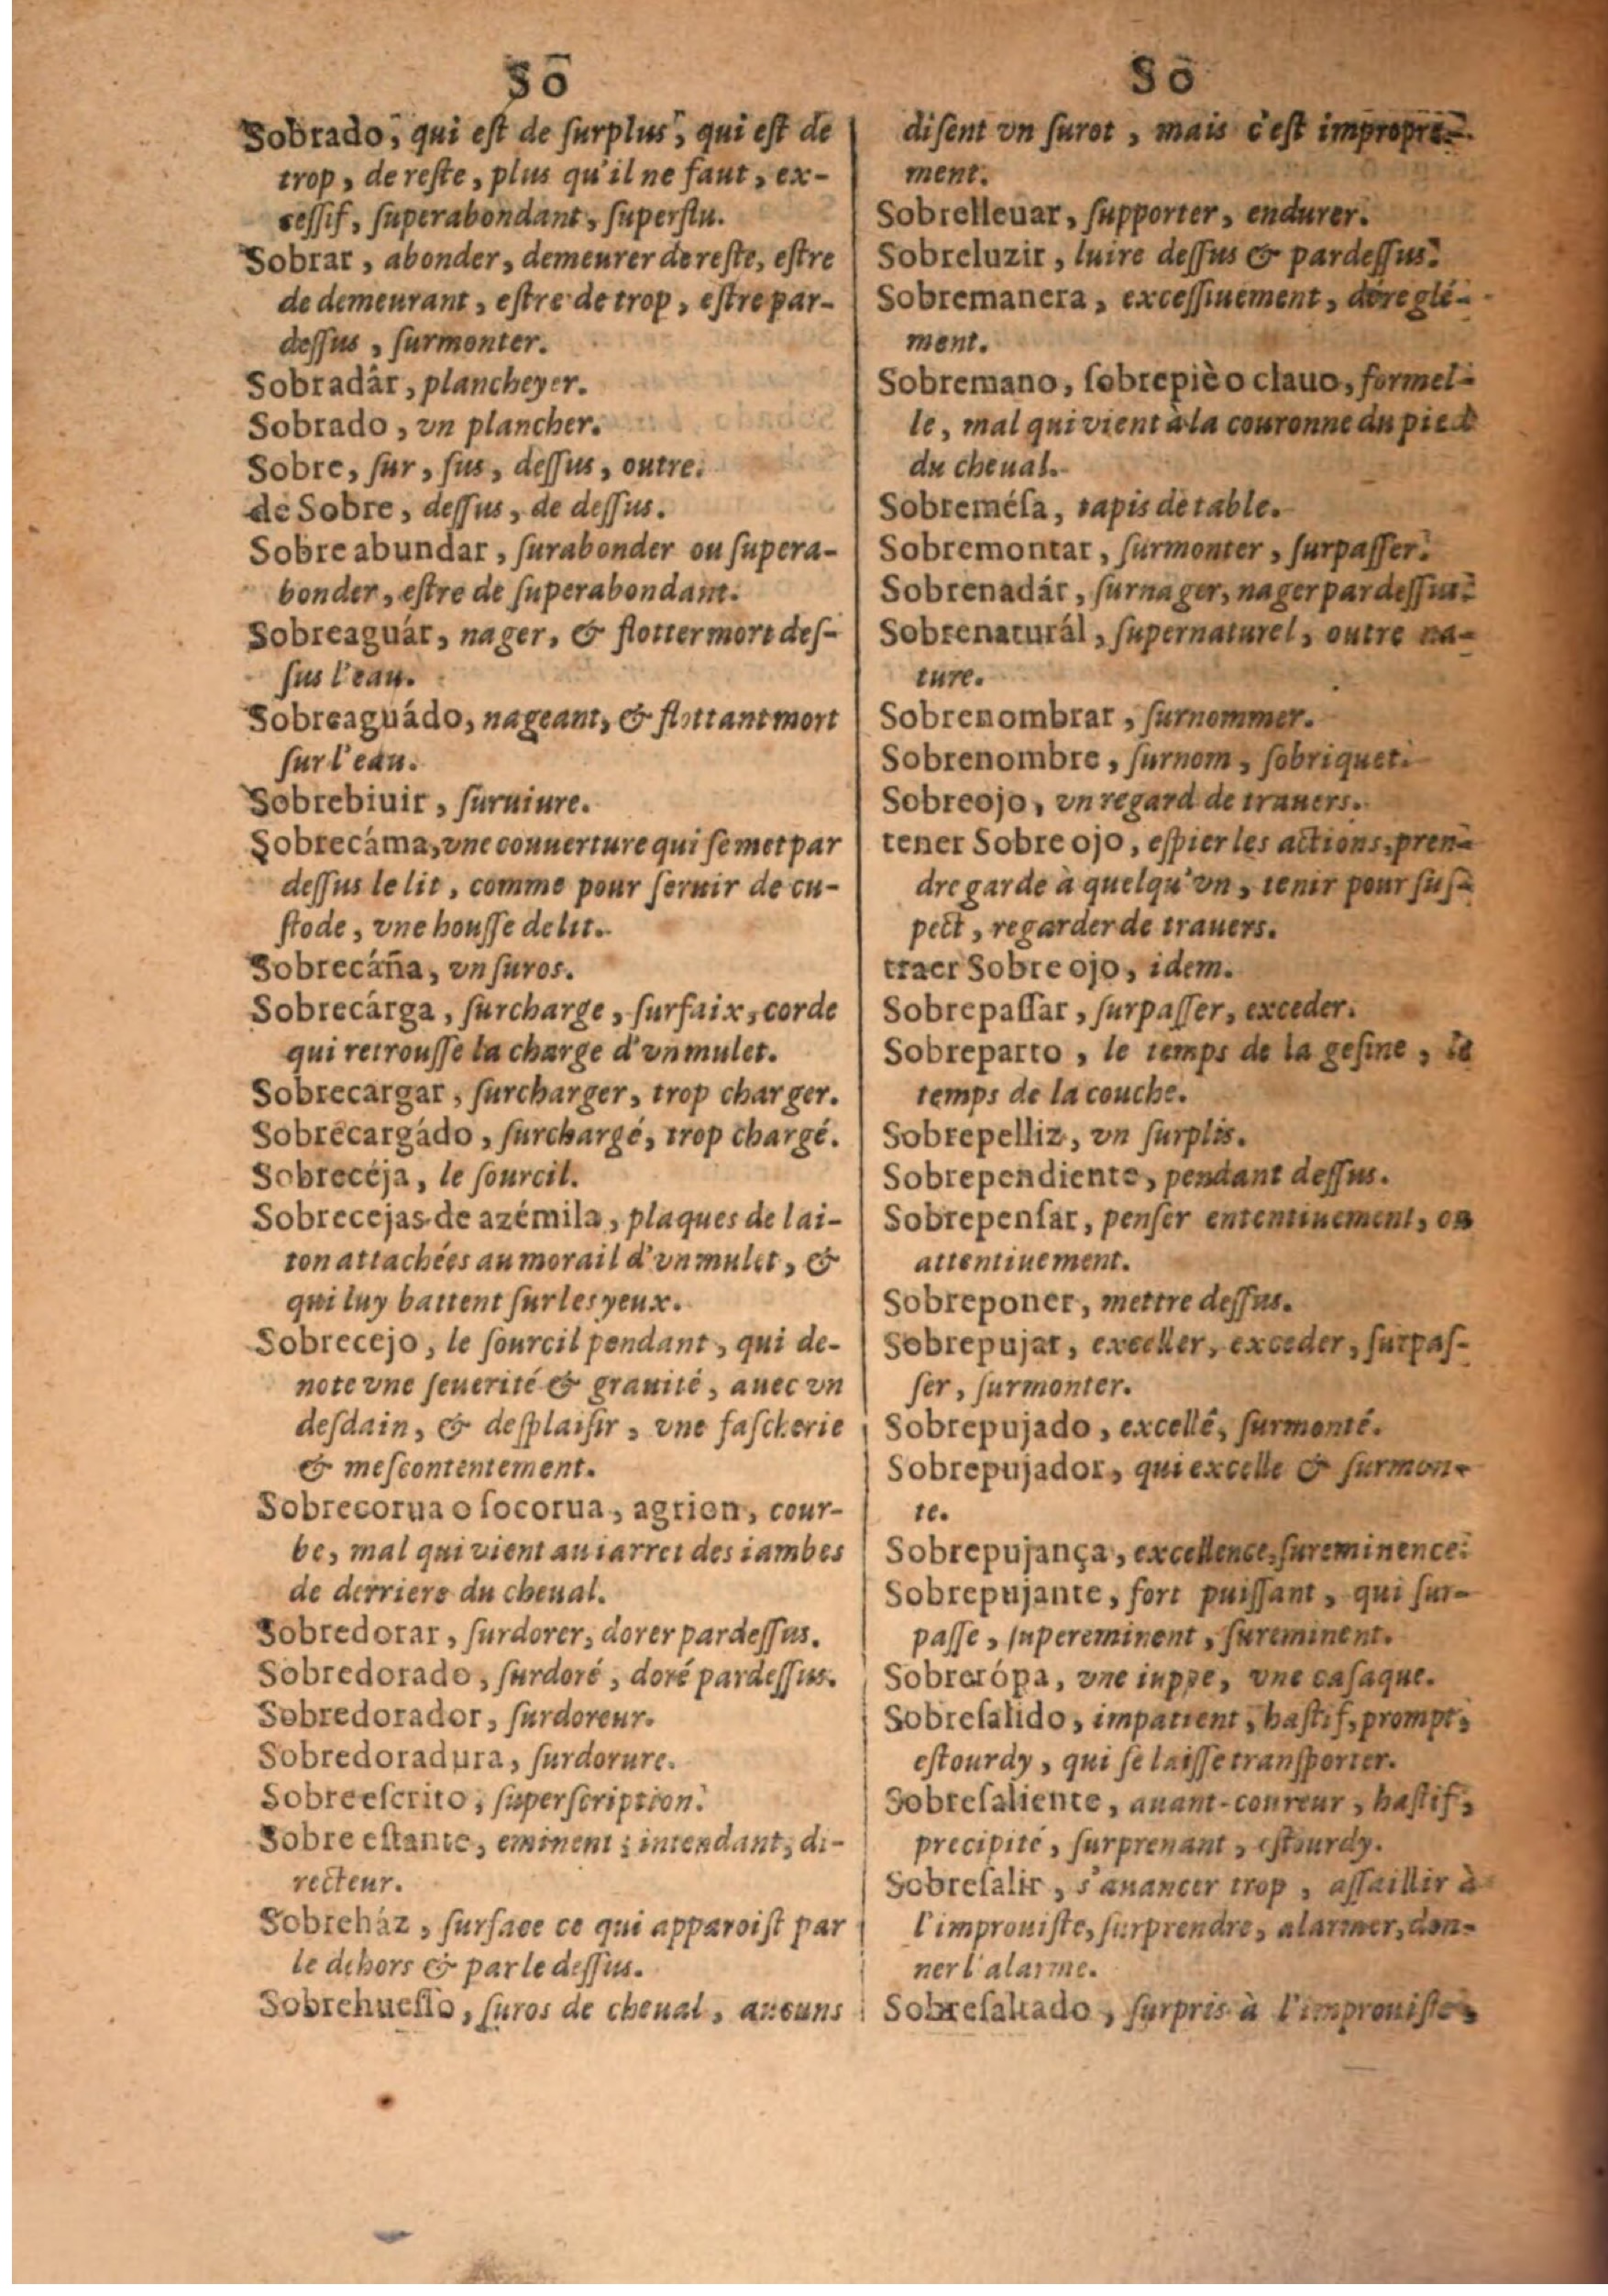 Sō
Sobrado, qui est de ſurplus, qui est de
trop, de reſte, plus qu'il ne faut, ex-
ceſſif, ſuperabondant, ſuperflu.
Sobrar, abonder, demeurer de reſte, eſtre
de demeurant, eſtre de trop, eſtre par-
deſſus, ſurmonter.
Sobradâr, plancheyer.
Sobrado, vn plancher.
Sobre, ſur, ſus, deſſus, outre.
de Sobre, deſſus, de deſſus.
Sobre abundar, ſurabonder ou ſupera-
bonder, eſtre de ſuperabondant.
Sobreaguár, nager, & flotter mort deſ-
ſus l'eau.
Sobreaguádo, nageant, & flottant mort
ſur l'eau.
Sobrebiuir, ſuruiure.
Sobrecáma, vne couuerture qui ſe met par
deſſus le lit, comme pour ſeruir de cu-
ſtode, vne houſſe de lit.
Sobrecáña, vn ſuros.
Sobrecárga, ſurcharge, ſurfaix, corde
qui retrouſſe la charge d'vn mulet.
Sobrecargar, ſurcharger, trop charger.
Sobrecargádo, ſurchargé, trop chargé.
Sobreceja, le ſourcil.
Sobrecejas de azémila, plaques de lai-
ton attachées au morail d'vn mulet, &
qui luy battent ſur les yeux.
Sobrecejo, le ſourcil pendant, qui de-
note vne ſeuerité & grauité, auec vn
deſdain, & deſplaiſir, vne faſcherie
& meſcontentement.
Sobrecorua o ſocorua, agrion, cour-
be, mal qui vient au iarret des iambes
de derriere du cheual.
Sobredorar, ſurdorer, dorer pardeſſus.
Sobredorado, ſurdoré, doré pardeſſus.
Sobredorador, ſurdoreur.
Sobredoradura, ſurdorure.
Sobreeſcrito, ſuperſcription.
Sobre eſtante, eminent; intendant, di-
recteur.
Sobreház, ſurface ce qui apparoiſt par
le dehors & par le deſſus.
Sobrehueſſo, ſuros de cheual, aucuns
Sō
diſent vn ſurot, mais c'eſt impropre-
ment.
Sobrelleuar, ſupporter, endurer.
Sobreluzir, luire deſſus & pardeſſus.
Sobremanera, exceſſiuement, déreglé-
ment.
Sobremano, ſobrepiè o clauo, formel-
le, mal qui vient à la couronne du pied
du cheual.
Sobreméſa, tapis de table.
Sobremontar, ſurmonter, ſurpaſſer.
Sobrenadár, ſurnager, nager par deſſus.
Sobrenaturál, ſupernaturel, outre na-
ture.
Sobrenombrar, ſurnommer.
Sobrenombre, ſurnom, ſobriquet.
Sobreojo, vn regard de trauers.
tener Sobre ojo, eſpier les actions, pren-
dre garde à quelqu'vn, tenir pour ſuſ-
pect, regarder de trauers.
traer Sobre ojo, idem.
Sobrepaſſar, ſurpaſſer, exceder.
Sobreparto, le temps de la geſine, le
temps de la couche.
Sobrepelliz, vn ſurplis.
Sobrependiente, pendant deſſus.
Sobrepenſar, penſer ententiuement, ou
attentiuement.
Sobreponer, mettre deſſus.
Sobrepujar, exceller, exceder, ſurpaſ-
ſer, ſurmonter.
Sobrepujado, excellé, ſurmonté.
Sobrepujador, qui excelle & ſurmon-
te.
Sobrepujança, excellence, ſureminence.
Sobrepujante, fort puiſſant, qui ſur-
paſſe, ſupereminent, ſureminent.
Sobrerópa, vne iuppe, vne caſaque.
Sobreſalido, impatient, haſtif, prompt,
eſtourdy, qui ſe laiſſe tranſporter.
Sobreſaliente, auant-coureur, haſtif,
precipité, ſurprenant, eſtourdy.
Sobreſalir, s'auancer trop, aſſaillir à
l'improuiſte, ſurprendre, alarmer, don-
ner l'alarme.
Sobreſaltado, ſurpris à l'improuiſte,